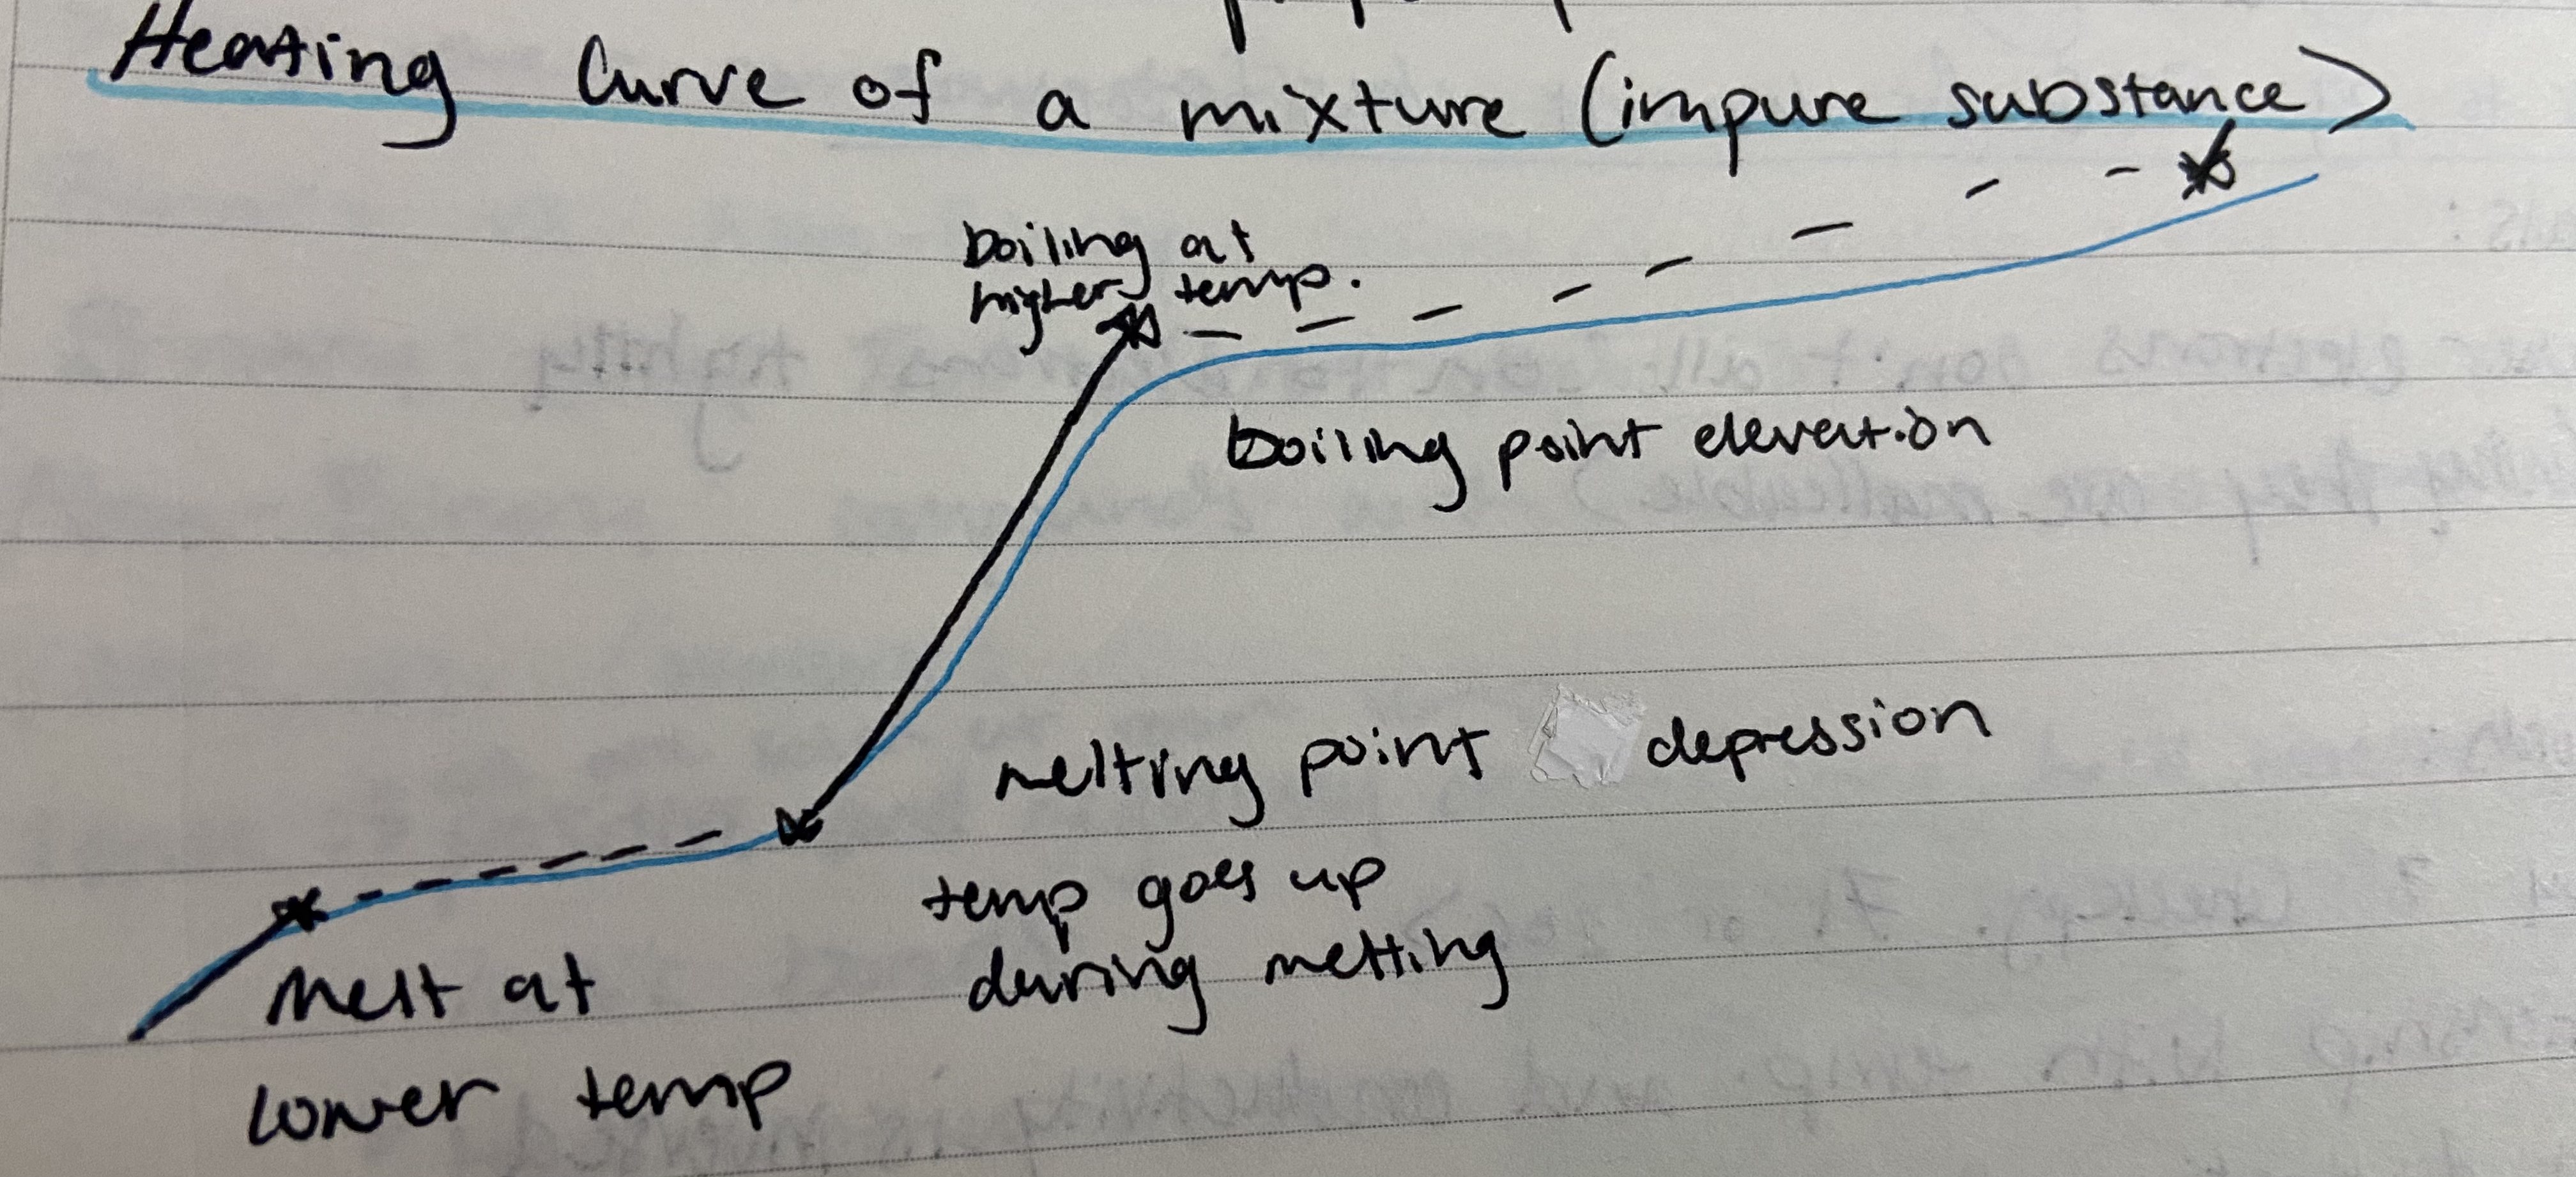 Heating Curve of a mixture (impure substance)
boiling at
higher temp.
boiling point elevation
melting point depression
temp goes up
during melting
Melt at
lower temp